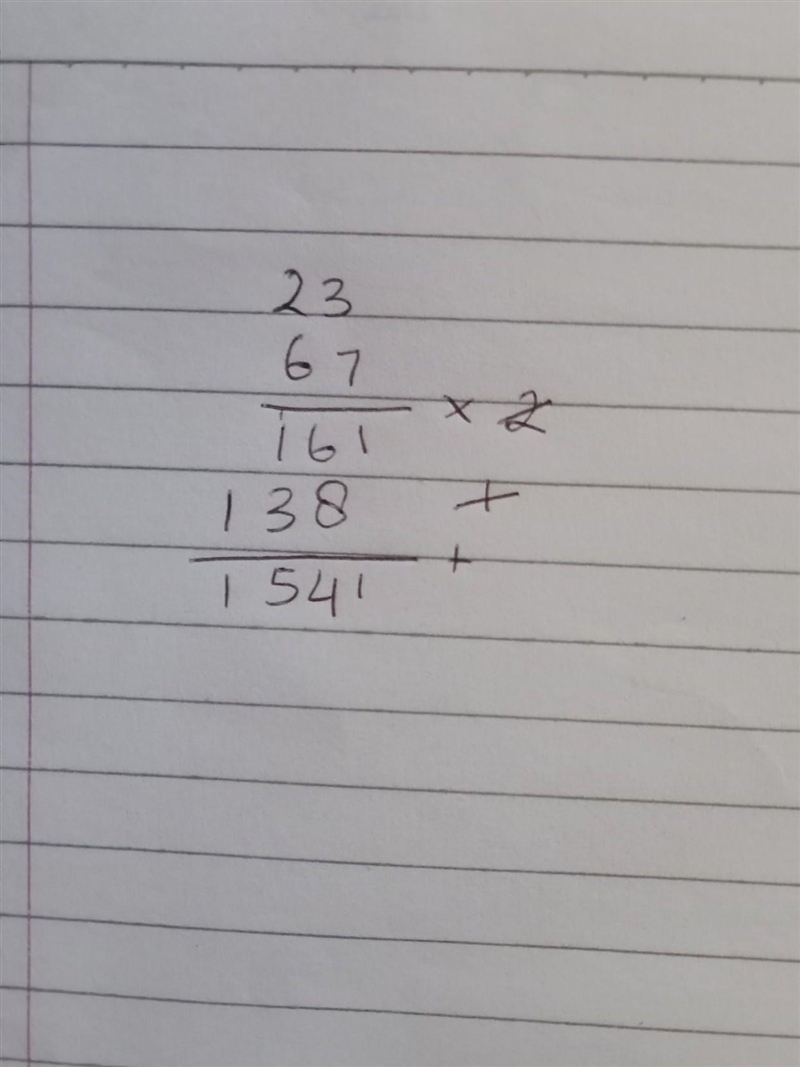 23
67
× 2
161
138 +
+
1541